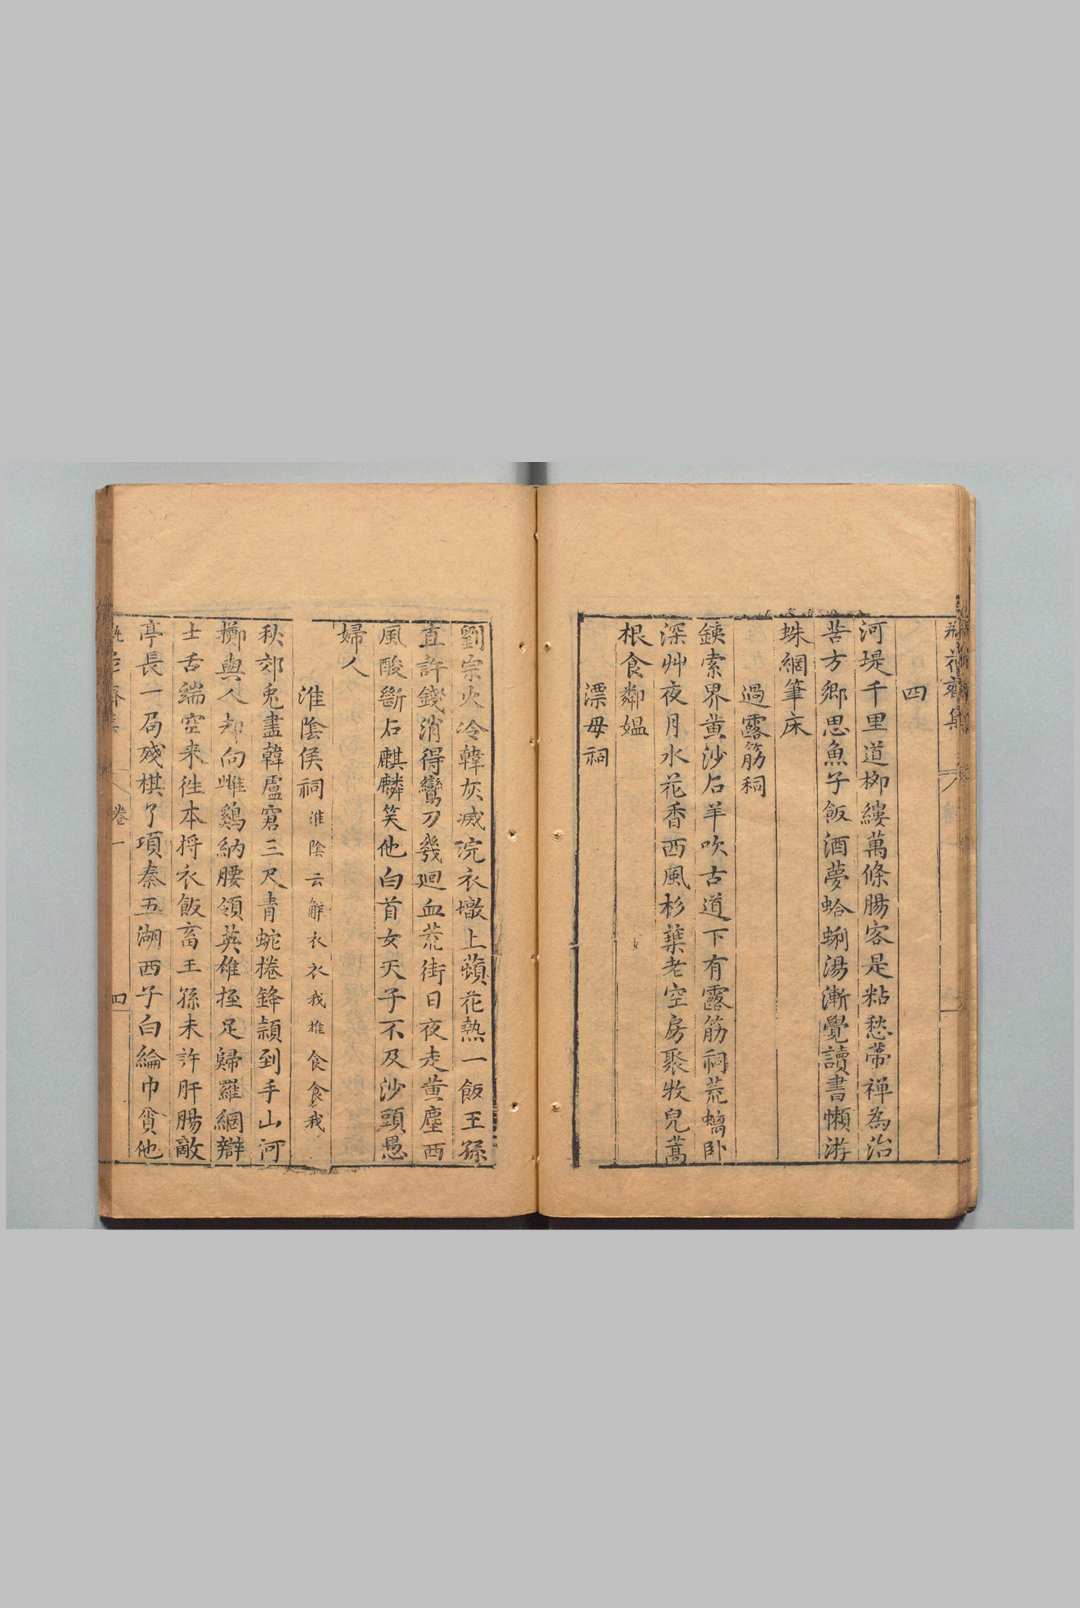 瓶花齋集
四
河堤千里道栁縷萬條膓客是粘愁蔕禅為治
苦方鄉思魚子飯酒夢蛤蜊湯漸覺讀書懶游
蛛網筆床
過露筋祠
鐵索界黄沙石羊吹古道下有露筋祠荒螭卧
深艸夜月水花香西風杉蘗老空房聚牧兒蒿
根食鄰媼
漂母祠
劉宗火冷韓灰滅浣衣墩上蘋花熱一飯王孫
直許錢消得鸞刀幾廻血荒街日夜走黄塵西
風酸斷石麒麟笑他白首女天子不及沙頭愚
婦人
淮陰侯祠淮陰云解衣衣我推食食我
秋郊兎盡韓盧窘三尺青蛇捲鋒頴到手山河
擲與人却向雌鷄納腰領英雄短足歸羅網辯
士舌端空來徃本将衣飯畜王孫未許肝膓敵
亭長一局殘棋了項秦五湖西子白綸巾貧他
卷一
四